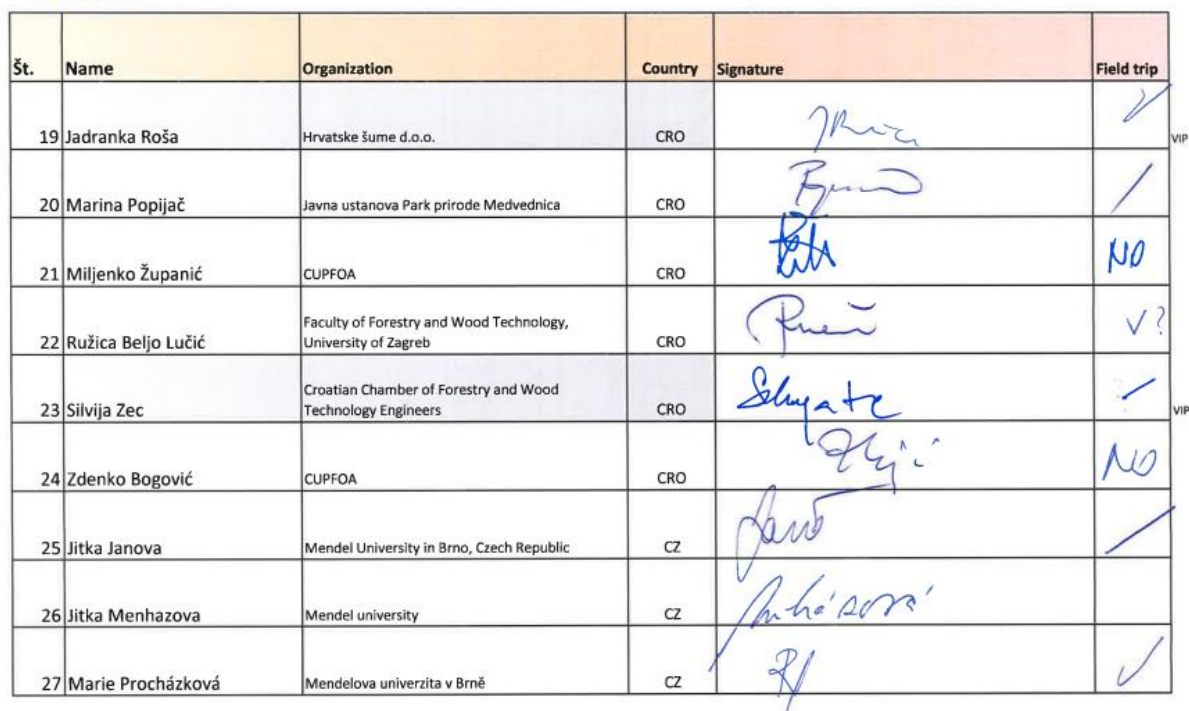 Št. Name Organization Country Signature Field trip
19 Jadranka Roša Hrvatske šume d.o.o. CRO VIP
20 Marina Popijač Javna ustanova Park prirode Medvednica CRO
21 Miljenko Županić CUPFOA CRO NO
Faculty of Forestry and Wood Technology,
22 Ružica Beljo Lučić University of Zagreb CRO ?
Croatian Chamber of Forestry and Wood
23 Silvija Zec Technology Engineers CRO VIP
24 Zdenko Bogović CUPFOA CRO NO
25 Jitka Janova Mendel University in Brno, Czech Republic CZ
26 Jitka Menhazova Mendel university CZ
27 Marie Procházková Mendelova univerzita v Brně CZ